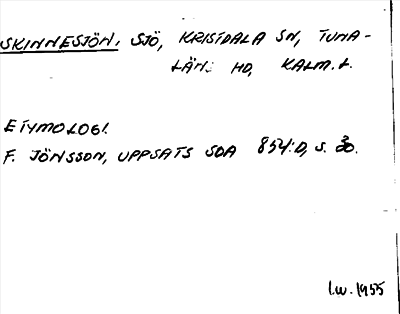 SKINNESJÖN, SJÖ, KRISTDALA SN, TUNA-
LÄN: HD, KALM.L.
ETYMOLOGI.
F. JÖNSSON, UPPSATS SOA 854:D, S. 30.
I.W. 1955